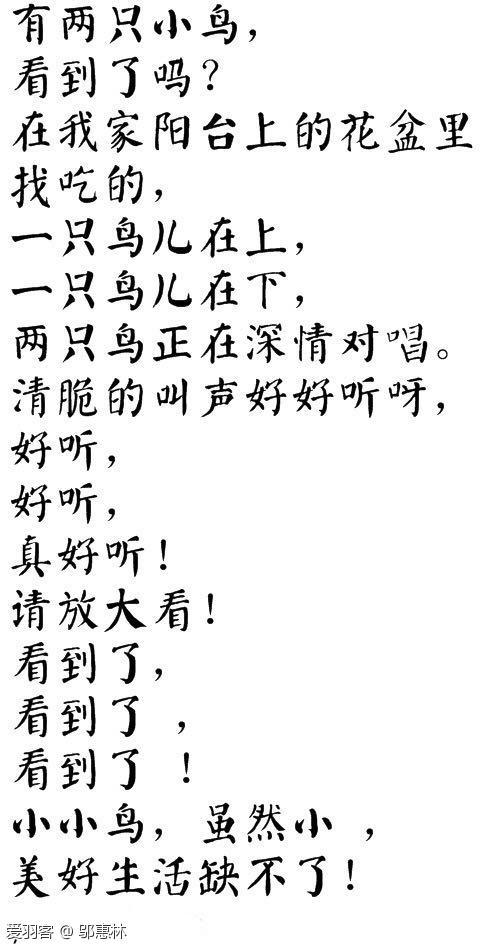 有两只小鸟，
看到了吗？
在我家阳台上的花盆里
找吃的，
一只鸟儿在上，
一只鸟儿在下，
两只鸟正在深情对唱。
清脆的叫声好好听呀，
好听，
好听，
真好听！
请放大看！
看到了，
看到了 ，
看到了 ！
小小鸟，虽然小 ，
美好生活缺不了！
爱羽客 @ 邬惠林